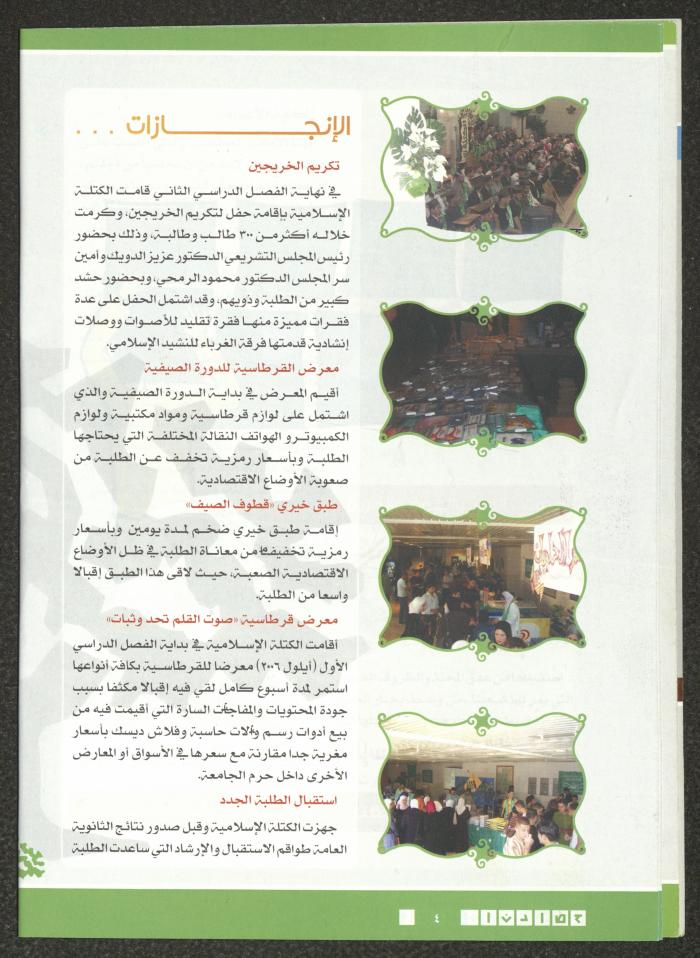 الإنجــــازات . . .
تكريم الخريجين
في نهاية الفصل الدراسي الثاني قامت الكتلة
الإسلامية بإقامة حفل لتكريم الخريجين، وكرمت
خلاله أكثر من ٣٠٠ طالب وطالبة، وذلك بحضور
رئيس المجلس التشريعي الدكتور عزيز الدويك وأمين
سر المجلس الدكتور محمود الرمحي، وبحضور حشد
كبير من الطلبة وذويهم، وقد اشتمل الحفل على عدة
فقرات مميزة منها فقرة تقليد للأصوات ووصلات
إنشادية قدمتها فرقة الغرباء للنشيد الإسلامي.
معرض القرطاسية للدورة الصيفية
أقيم المعرض في بداية الدورة الصيفية والذي
اشتمل على لوازم قرطاسية ومواد مكتبية ولوازم
الكمبيوتر و الهواتف النقالة المختلفة التي يحتاجها
الطلبة وبأسعار رمزية تخفف عن الطلبة من
صعوبة الأوضاع الاقتصادية.
طبق خيري «قطوف الصيف»
إقامة طبق خيري ضخم لمدة يومين وبأسعار
رمزية تخفيفا من معاناة الطلبة في ظل الأوضاع
الاقتصادية الصعبة، حيث لاقى هذا الطبق إقبالا
واسعا من الطلبة.
معرض قرطاسية «صوت القلم تحد وثبات»
أقامت الكتلة الإسلامية في بداية الفصل الدراسي
الأول (أيلول ٢٠٠٦) معرضا للقرطاسية بكافة أنواعها
استمر لمدة أسبوع كامل لقي فيه إقبالا مكثفا بسبب
جودة المحتويات والمفاجآت السارة التي أقيمت فيه من
بيع أدوات رسم وآلات حاسبة وفلاش ديسك بأسعار
مغرية جدا مقارنة مع سعرها في الأسواق أو المعارض
الأخرى داخل حرم الجامعة.
استقبال الطلبة الجدد
جهزت الكتلة الإسلامية وقبل صدور نتائج الثانوية
العامة طواقم الاستقبال والإرشاد التي ساعدت الطلبة
٤